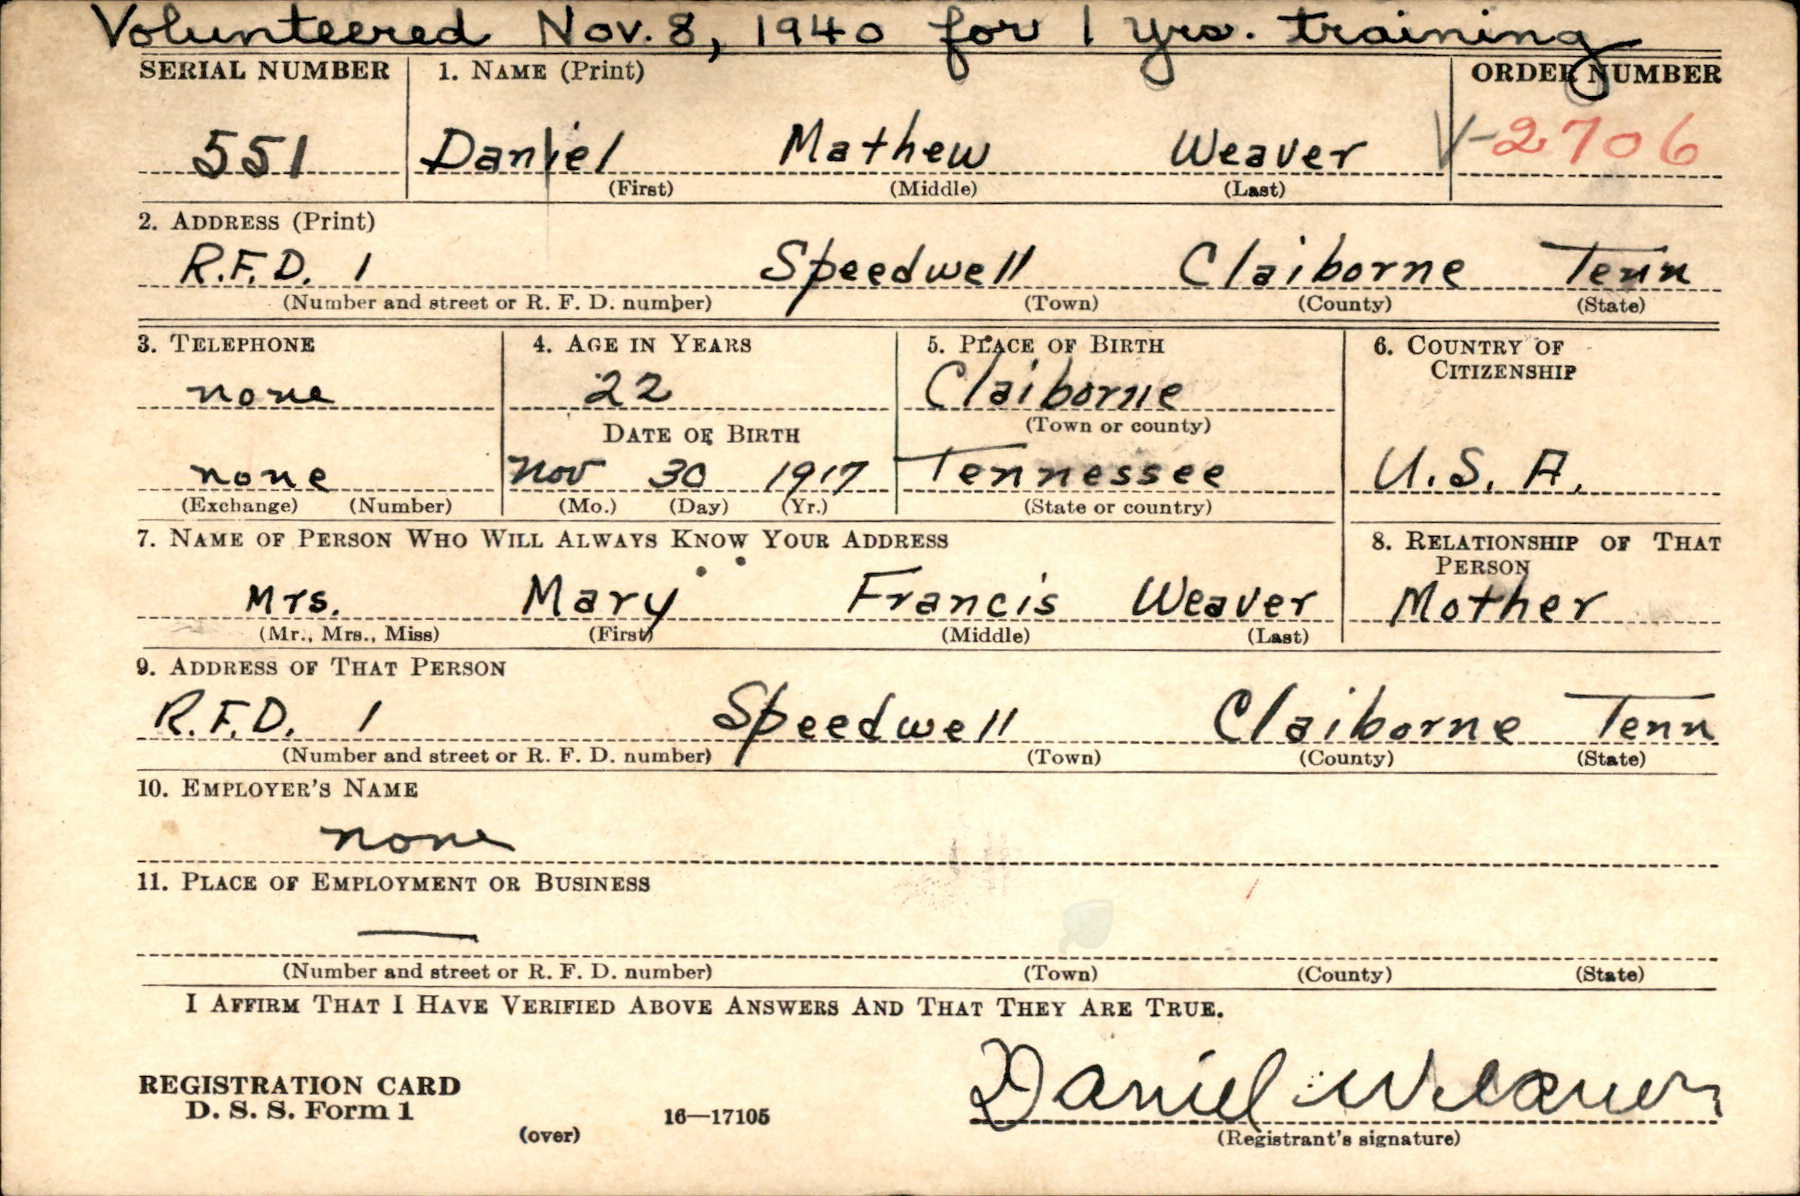 Volunteered Nov. 8, 1940 for 1 yrs. training
SERIAL NUMBER 1. NAME (Print) ORDER NUMBER
551 Daniel Mathew Weaver V-2706
(First) (Middle) (Last)
2. ADDRESS (Print)
R.F.D. 1 Speedwell Claiborne Tenn
(Number and street or R. F. D. number) (Town) (County) (State)
3. TELEPHONE 4. AGE IN YEARS 5. PLACE OF BIRTH 6. COUNTRY OF CITIZENSHIP
none 22 Claiborne
DATE OF BIRTH (Town or county)
none Nov 30 1917 Tennessee U.S.A.
(Exchange) (Number) (Mo.) (Day) (Yr.) (State or country)
7. NAME OF PERSON WHO WILL ALWAYS KNOW YOUR ADDRESS 8. RELATIONSHIP OF THAT PERSON
Mrs. Mary Francis Weaver Mother
(Mr., Mrs., Miss) (First) (Middle) (Last)
9. ADDRESS OF THAT PERSON
R.F.D. 1 Speedwell Claiborne Tenn
(Number and street or R. F. D. number) (Town) (County) (State)
10. EMPLOYER'S NAME
none
11. PLACE OF EMPLOYMENT OR BUSINESS
—
(Number and street or R. F. D. number) (Town) (County) (State)
I AFFIRM THAT I HAVE VERIFIED ABOVE ANSWERS AND THAT THEY ARE TRUE.
REGISTRATION CARD
D. S. S. Form 1 16—17105 Daniel Weaver
(over) (Registrant's signature)